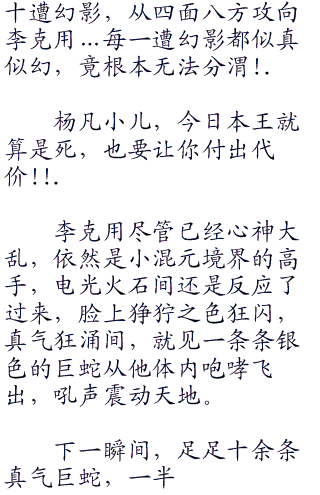 十遭幻影，从四面八方攻向
李克用...每一遭幻影都似真
似幻，竟根本无法分渭!.
杨凡小儿，今日本王就
算是死，也要让你付出代
价!!.
李克用尽管已经心神大
乱，依然是小混元境界的高
手，电光火石间还是反应了
过来，脸上狰狞之色狂闪，
真气狂涌间，就见一条条银
色的巨蛇从他体内咆哮飞
出，吼声震动天地。
下一瞬间，足足十余条
真气巨蛇，一半